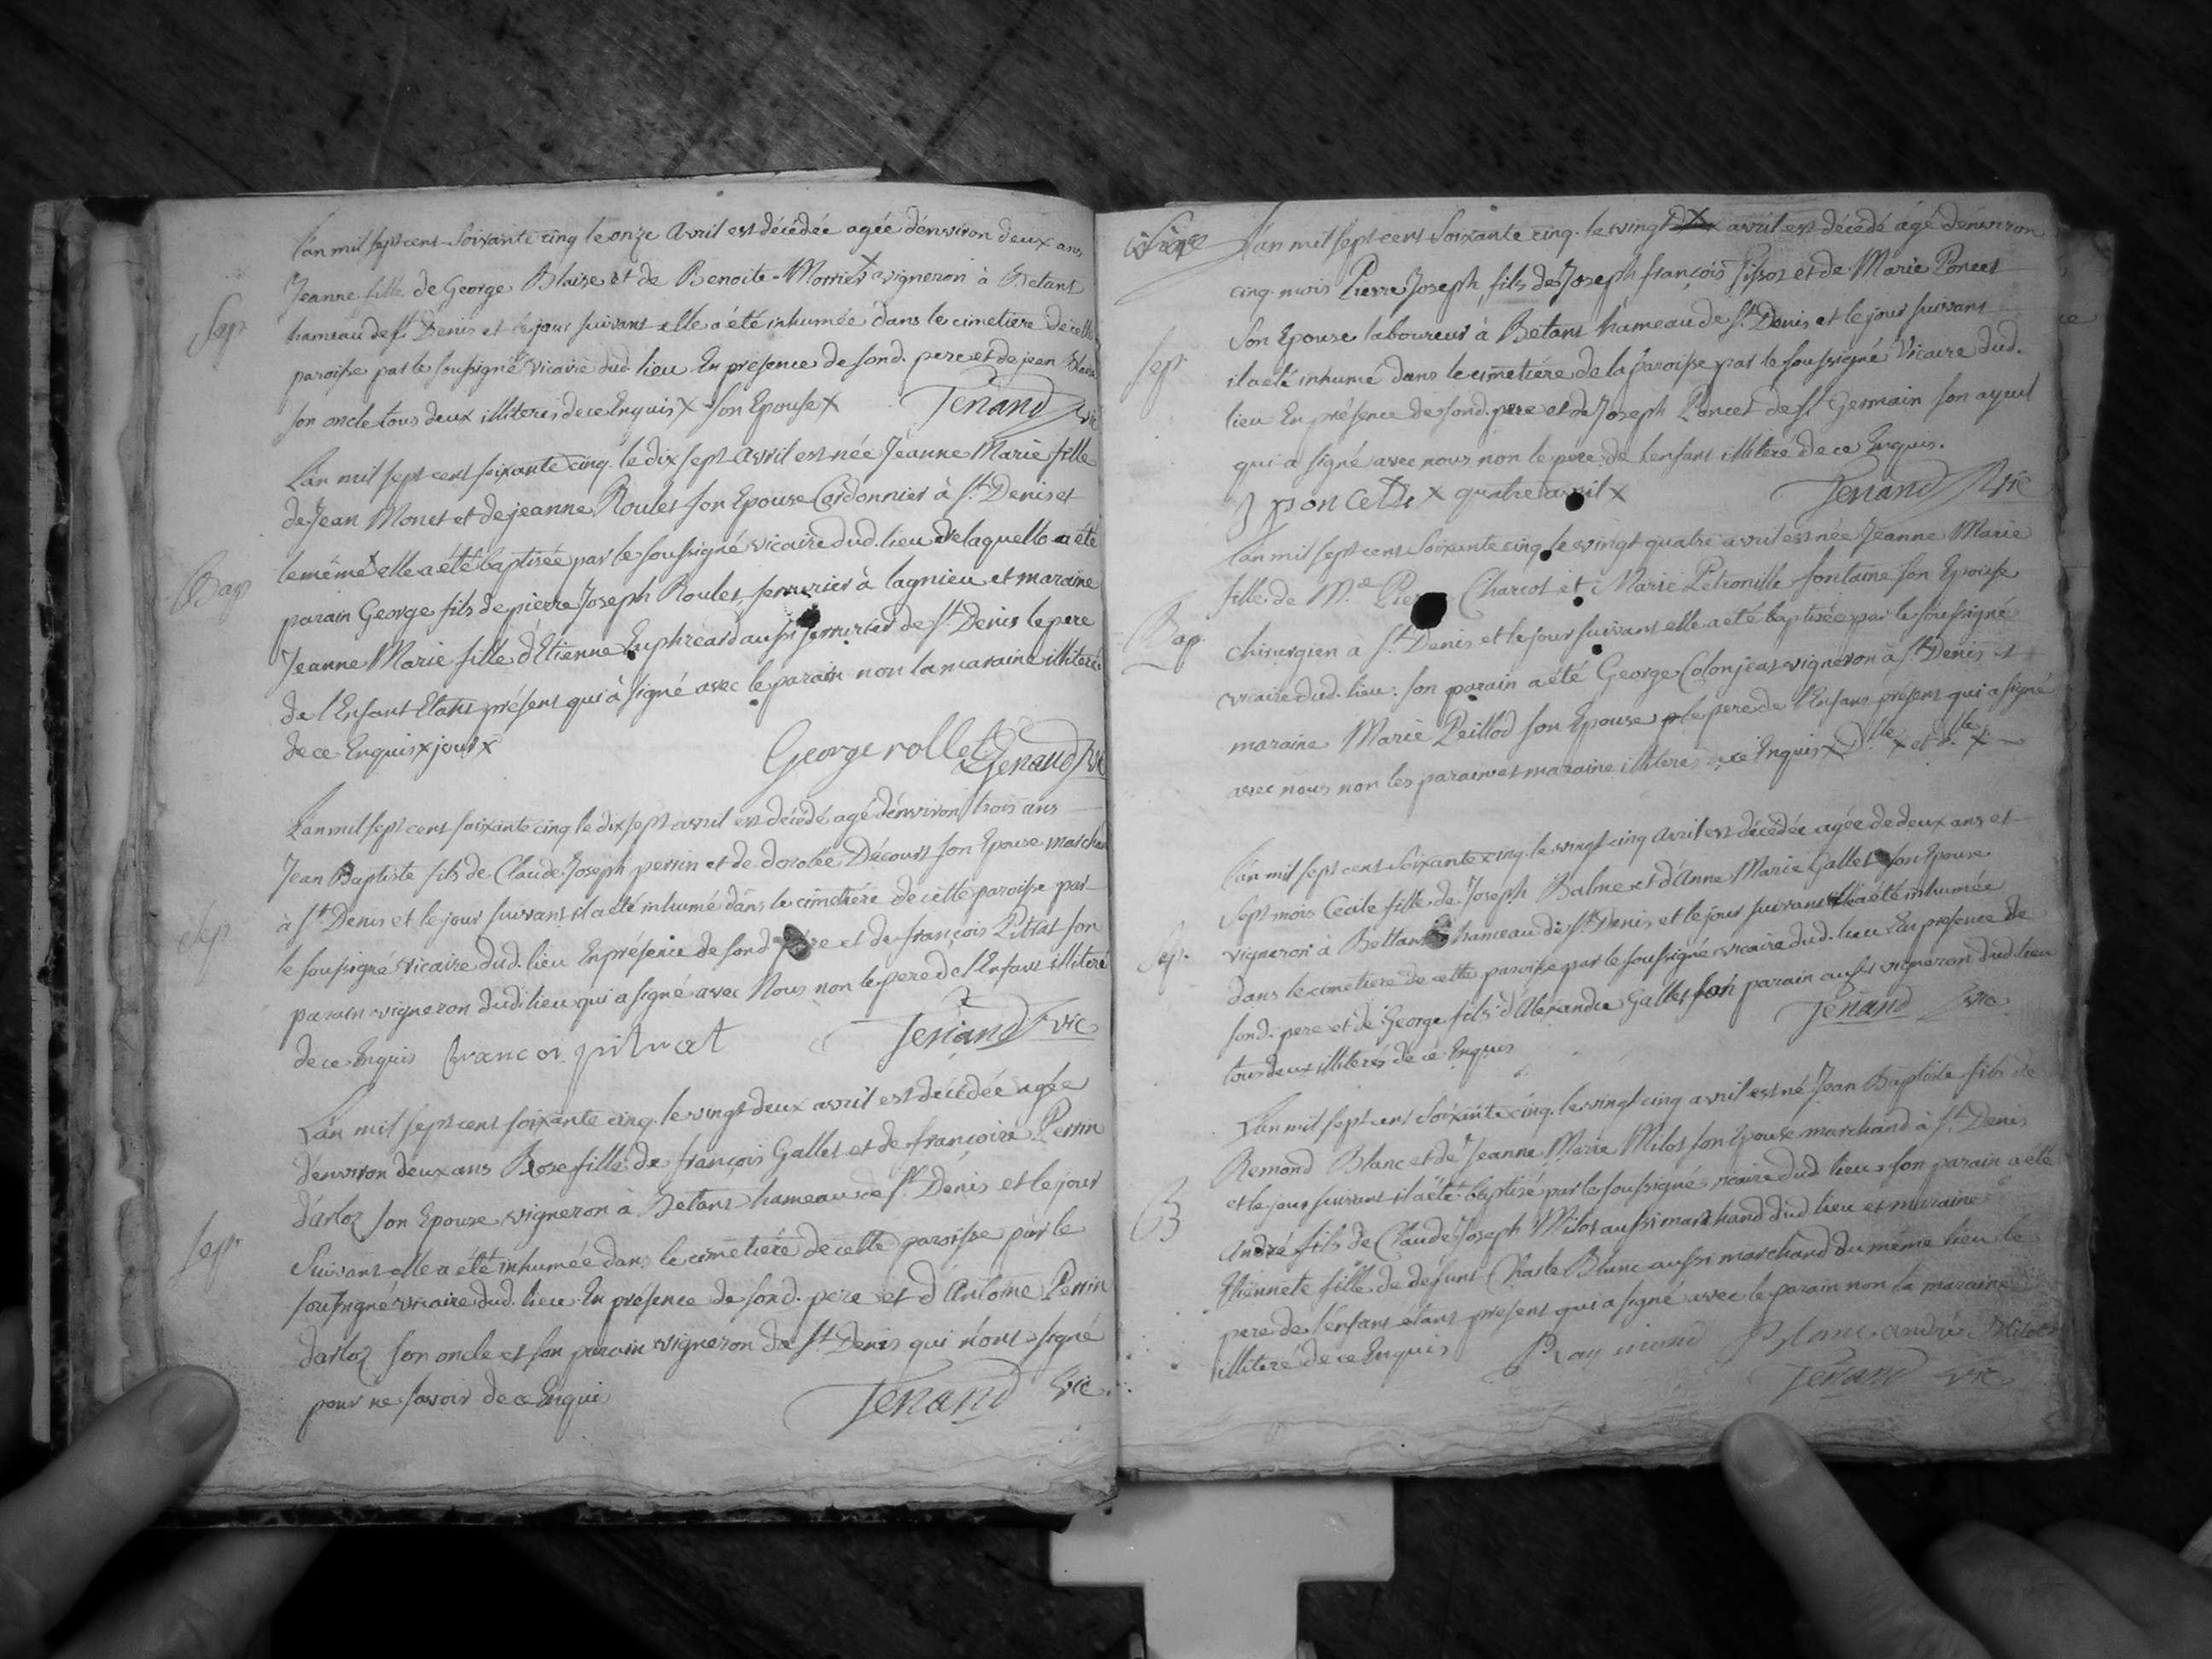 L'an mil sept cent soixante cinq le onze Avril est décédée agée d'environ deux ans
Jeanne fille de George Blaise et de Benoite Morrier x vigneron à Betant
Sep. hameau de St Denis et le jour suivant elle a été inhumée dans le cimetiere de cette
paroisse par le soussigné vicaire dud. lieu En presence de sond. pere et de jean Blaise
son oncle tous deux illiteres de ce Enquis x son Epouse x Tenand vic
L'an mil sept cent soixante cinq. le dix sept Avril est née Jeanne Marie fille
de Jean Monet et de jeanne Roulet son Epouse Cordonnier à St Denis et
le même x elle a été baptisée par le soussigné vicaire dud. lieu de laquelle a été
Bap parain George fils de pierre Joseph Roulet serrurier à lagnieu et maraine
Jeanne Marie fille d'Etienne Euphreard aussi serrurier de St Denis le pere
de l'Enfant Etant présent qui à signé avec le parain non la maraine illiterée
de ce Enquis x jour x George rollet Tenand vic
L'an mil sept cent soixante cinq le dix sept avril est décédé agé d'environ trois ans
Jean Baptiste fils de Claude Joseph perrin et de dorotée Décourt son Epouse marchand
Sep à St Denis et le jour suivant il a été inhumé dans le cimetiére de cette paroisse par
le soussigné vicaire dud. lieu En présence de sond. pere et de françois Pittrat son
parain vigneron dud. lieu qui a signé avec Nous non le pere de l'Enfant illiteré
de ce Enquis francoi pitrat Tenand vic
L'an mil sept cent soixante cinq. le vingt deux avril est décédée agée
d'environ deux ans Rose fille de françois Gallet et de françoise Perrin
d'arloz son Epouse vigneron à Betant hameau de St Denis et le jour
Sep. Suivant elle a été inhumée dans le cimetiére de cette paroisse par le
soussigné vicaire dud. lieu En présence de sond. pere et d'Antoine Perrin
darloz son oncle et son parain vigneron de St Denis qui n'ont signé
pour ne savoir de ce Enquis Tenand vic.
L'an mil sept cent soixante cinq. le vingt x avril est décédé agé d'environ
cinq mois Pierre Joseph, fils de Joseph françois Tissot et de Marie Poncet
Son Epouse laboureur à Betant hameau de St Denis et le jour suivant
Sep. il a été inhumé dans le cimetiére de la paroisse par le soussigné Vicaire dud.
lieu En présence de sond. pere et de Joseph Poncet de St Germain son ayeul
qui a signé avec nous non le pere de l'enfant illiteré de ce Enquis.
J poncet x quatre avril x Tenand vic
L'an mil sept cent soixante cinq le vingt quatre avril est née Jeanne Marie
fille de M.e Pierre Charcot et Marie Petronille fontaine son Epouse
Bap chirurgien a St Denis et le jour suivant elle a été baptisée par le soussigné
vicaire dud. lieu. son parain a été George Colonjeat vigneron à St Denis et
maraine Marie Peillod son Epouse le pere de l'Enfant présent qui a signé
avec nous non les parain et maraine illiteres de ce Enquis x D.lle x et D.lle x
L'an mil sept cent soixante cinq. le vingt cinq Avril est décédée agée de deux ans et
Sept mois Cecile fille de Joseph Balme et d'Anne Marie Gallet son Epouse
Sep. vigneron à Bettant hameau de St Denis et le jour suivant elle a été inhumée
dans le cimetiere de cette paroisse par le soussigné vicaire dud. lieu En presence de
sond. pere et de George fils d'Alexandre Gallet son parain aussi vigneron dud. lieu
tous deux illiterés de ce Enquis Tenand vic
L'an mil sept cent soixante cinq. le vingt cinq avril est né Jean Baptiste fils de
Remond Blanc et de Jeanne Marie Milot son Epouse marchand à St Denis
et le jour suivant il a été baptisé par le soussigné vicaire dud lieu son parain a été
B André fils de Claude Joseph Milot aussi marchand dud lieu et maraine
Etiennete fille de defunt Charle Blanc aussi marchand du même lieu le
pere de l'enfant étant présent qui a signé avec le parain non la maraine
illiteré de ce Enquis Raymond Blanc andré Milot
Tenand vic